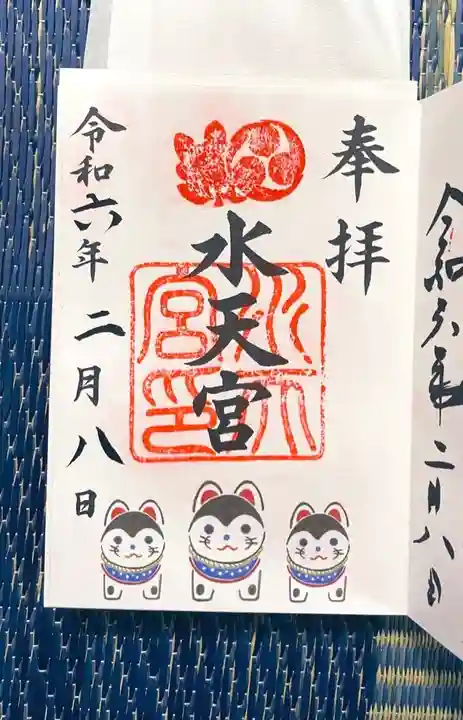 奉拝
水天宮
水天宮印
令和六年 二月八日
令和六年二月八日